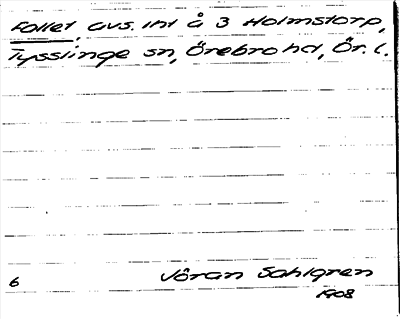 Fallet, avs. int å 3 Holmstorp,
Tysslinge sn, Örebro hd, Ör. l.
6 Jöran Sahlgren
1908